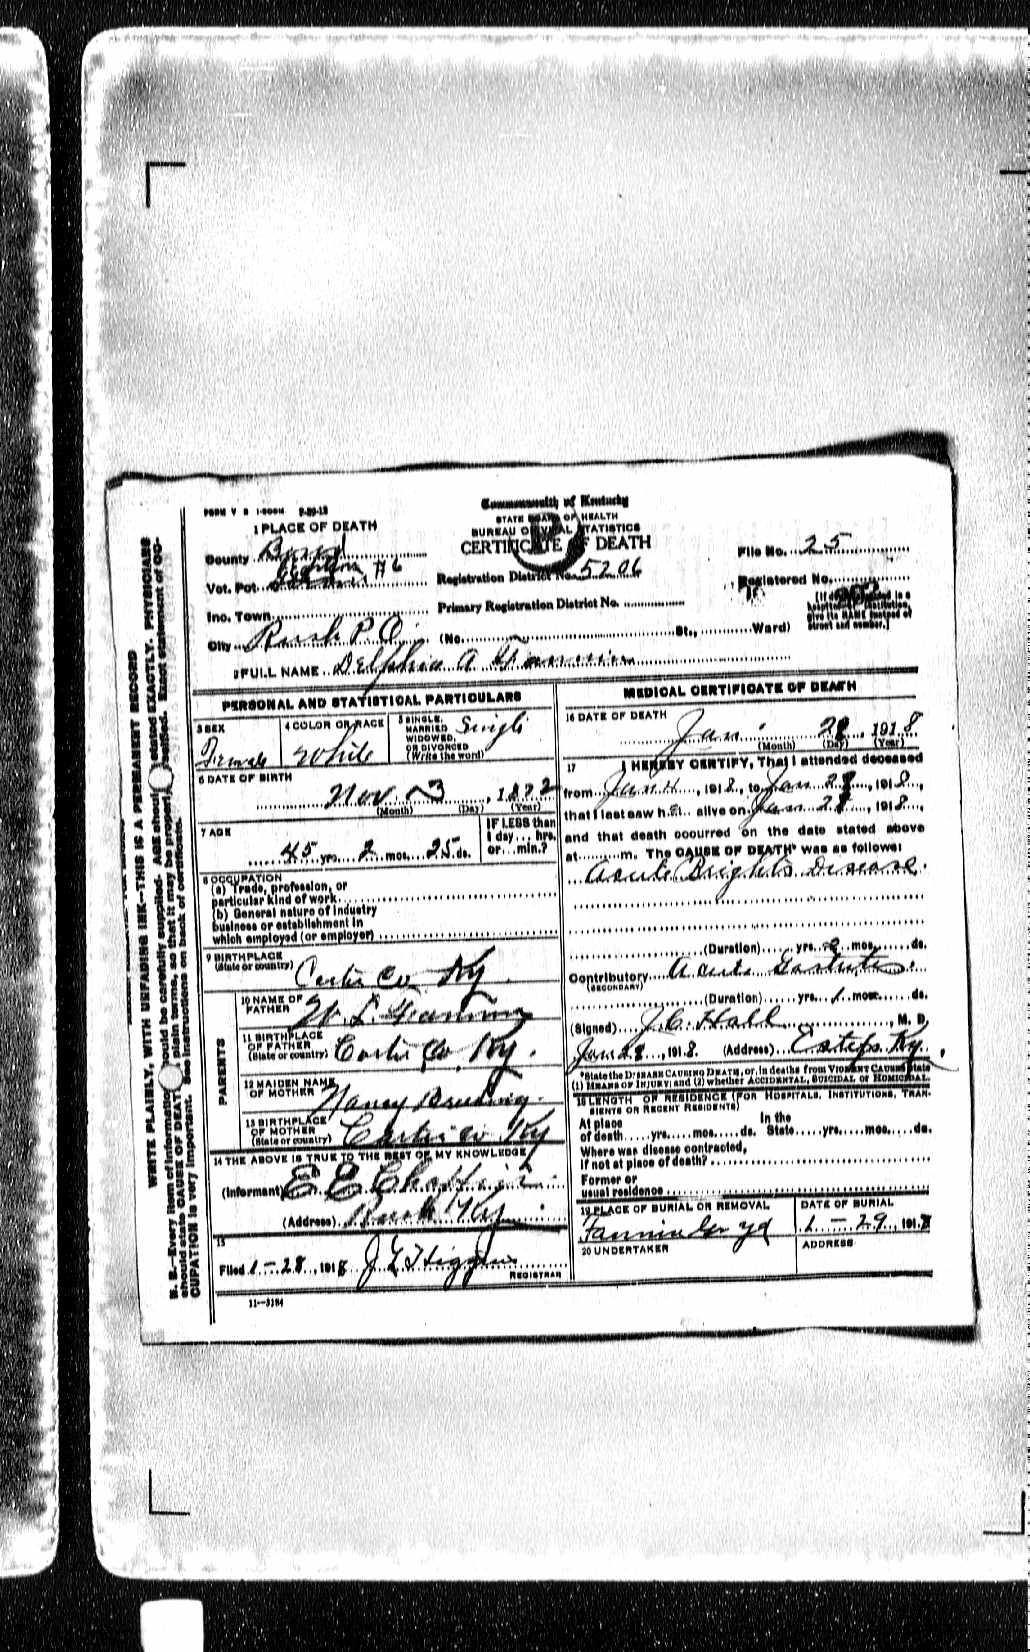 FORM V S 1-500M 9-29-13
Commonwealth of Kentucky
STATE BOARD OF HEALTH
BUREAU OF VITAL STATISTICS
CERTIFICATE OF DEATH
1 PLACE OF DEATH
County Boyd
Vot. Pct. #6
Registration District No. 5206
File No. 25
Registered No.
Inc. Town
Primary Registration District No.
City Rush P.O. (No. St., Ward)
[If death occurred in a hospital or institution, give its NAME instead of street and number.]
2 FULL NAME Delphia A Fannin
PERSONAL AND STATISTICAL PARTICULARS
3 SEX
Female
4 COLOR OR RACE
White
5 SINGLE, MARRIED, WIDOWED, OR DIVORCED (Write the word)
Single
6 DATE OF BIRTH
Nov 3, 1872
(Month) (Day) (Year)
7 AGE
45 yrs. 2 mos. 25 ds.
IF LESS than 1 day... hrs. or... min.?
8 OCCUPATION
(a) Trade, profession, or
particular kind of work
(b) General nature of industry
business or establishment in
which employed (or employer)
9 BIRTHPLACE
(State or country)
Carter Co Ky.
PARENTS
10 NAME OF FATHER
W. L. Fannin
11 BIRTHPLACE OF FATHER (State or country)
Carter Co. Ky.
12 MAIDEN NAME OF MOTHER
Nancy
13 BIRTHPLACE OF MOTHER (State or country)
Carter Co Ky
14 THE ABOVE IS TRUE TO THE BEST OF MY KNOWLEDGE
(Informant) E E
(Address) Rush Ky.
15
Filed 1-28, 1918 J L Higgins
REGISTRAR
11—3184
MEDICAL CERTIFICATE OF DEATH
16 DATE OF DEATH
Jan 28, 1918
(Month) (Day) (Year)
17 I HEREBY CERTIFY, That I attended deceased
from Jan 4, 1918, to Jan 28, 1918,
that I last saw her alive on Jan 28, 1918,
and that death occurred on the date stated above
at m. The CAUSE OF DEATH* was as follows:
Acute Brights Disease.
(Duration) yrs. 2 mos. ds.
Contributory Acute Gastritis.
(SECONDARY)
(Duration) yrs. 1 mos. ds.
(Signed) J. C. Hall, M. D.
Jan 28, 1918. (Address) Esteps Ky.
*State the DISEASE CAUSING DEATH, or, in deaths from VIOLENT CAUSES, state
(1) MEANS OF INJURY; and (2) whether ACCIDENTAL, SUICIDAL or HOMICIDAL.
18 LENGTH OF RESIDENCE (FOR HOSPITALS, INSTITUTIONS, TRANSIENTS OR RECENT RESIDENTS)
At place of death yrs. mos. ds. In the State yrs. mos. ds.
Where was disease contracted,
if not at place of death?
Former or
usual residence
19 PLACE OF BURIAL OR REMOVAL
Fannin Gr yd
DATE OF BURIAL
1-29, 1918
20 UNDERTAKER
ADDRESS
WRITE PLAINLY, WITH UNFADING INK—THIS IS A PERMANENT RECORD
N. B.—Every item of information should be carefully supplied. AGE should be stated EXACTLY. PHYSICIANS
should state CAUSE OF DEATH in plain terms, so that it may be properly classified. Exact statement of OC-
CUPATION is very important. See instructions on back of certificate.